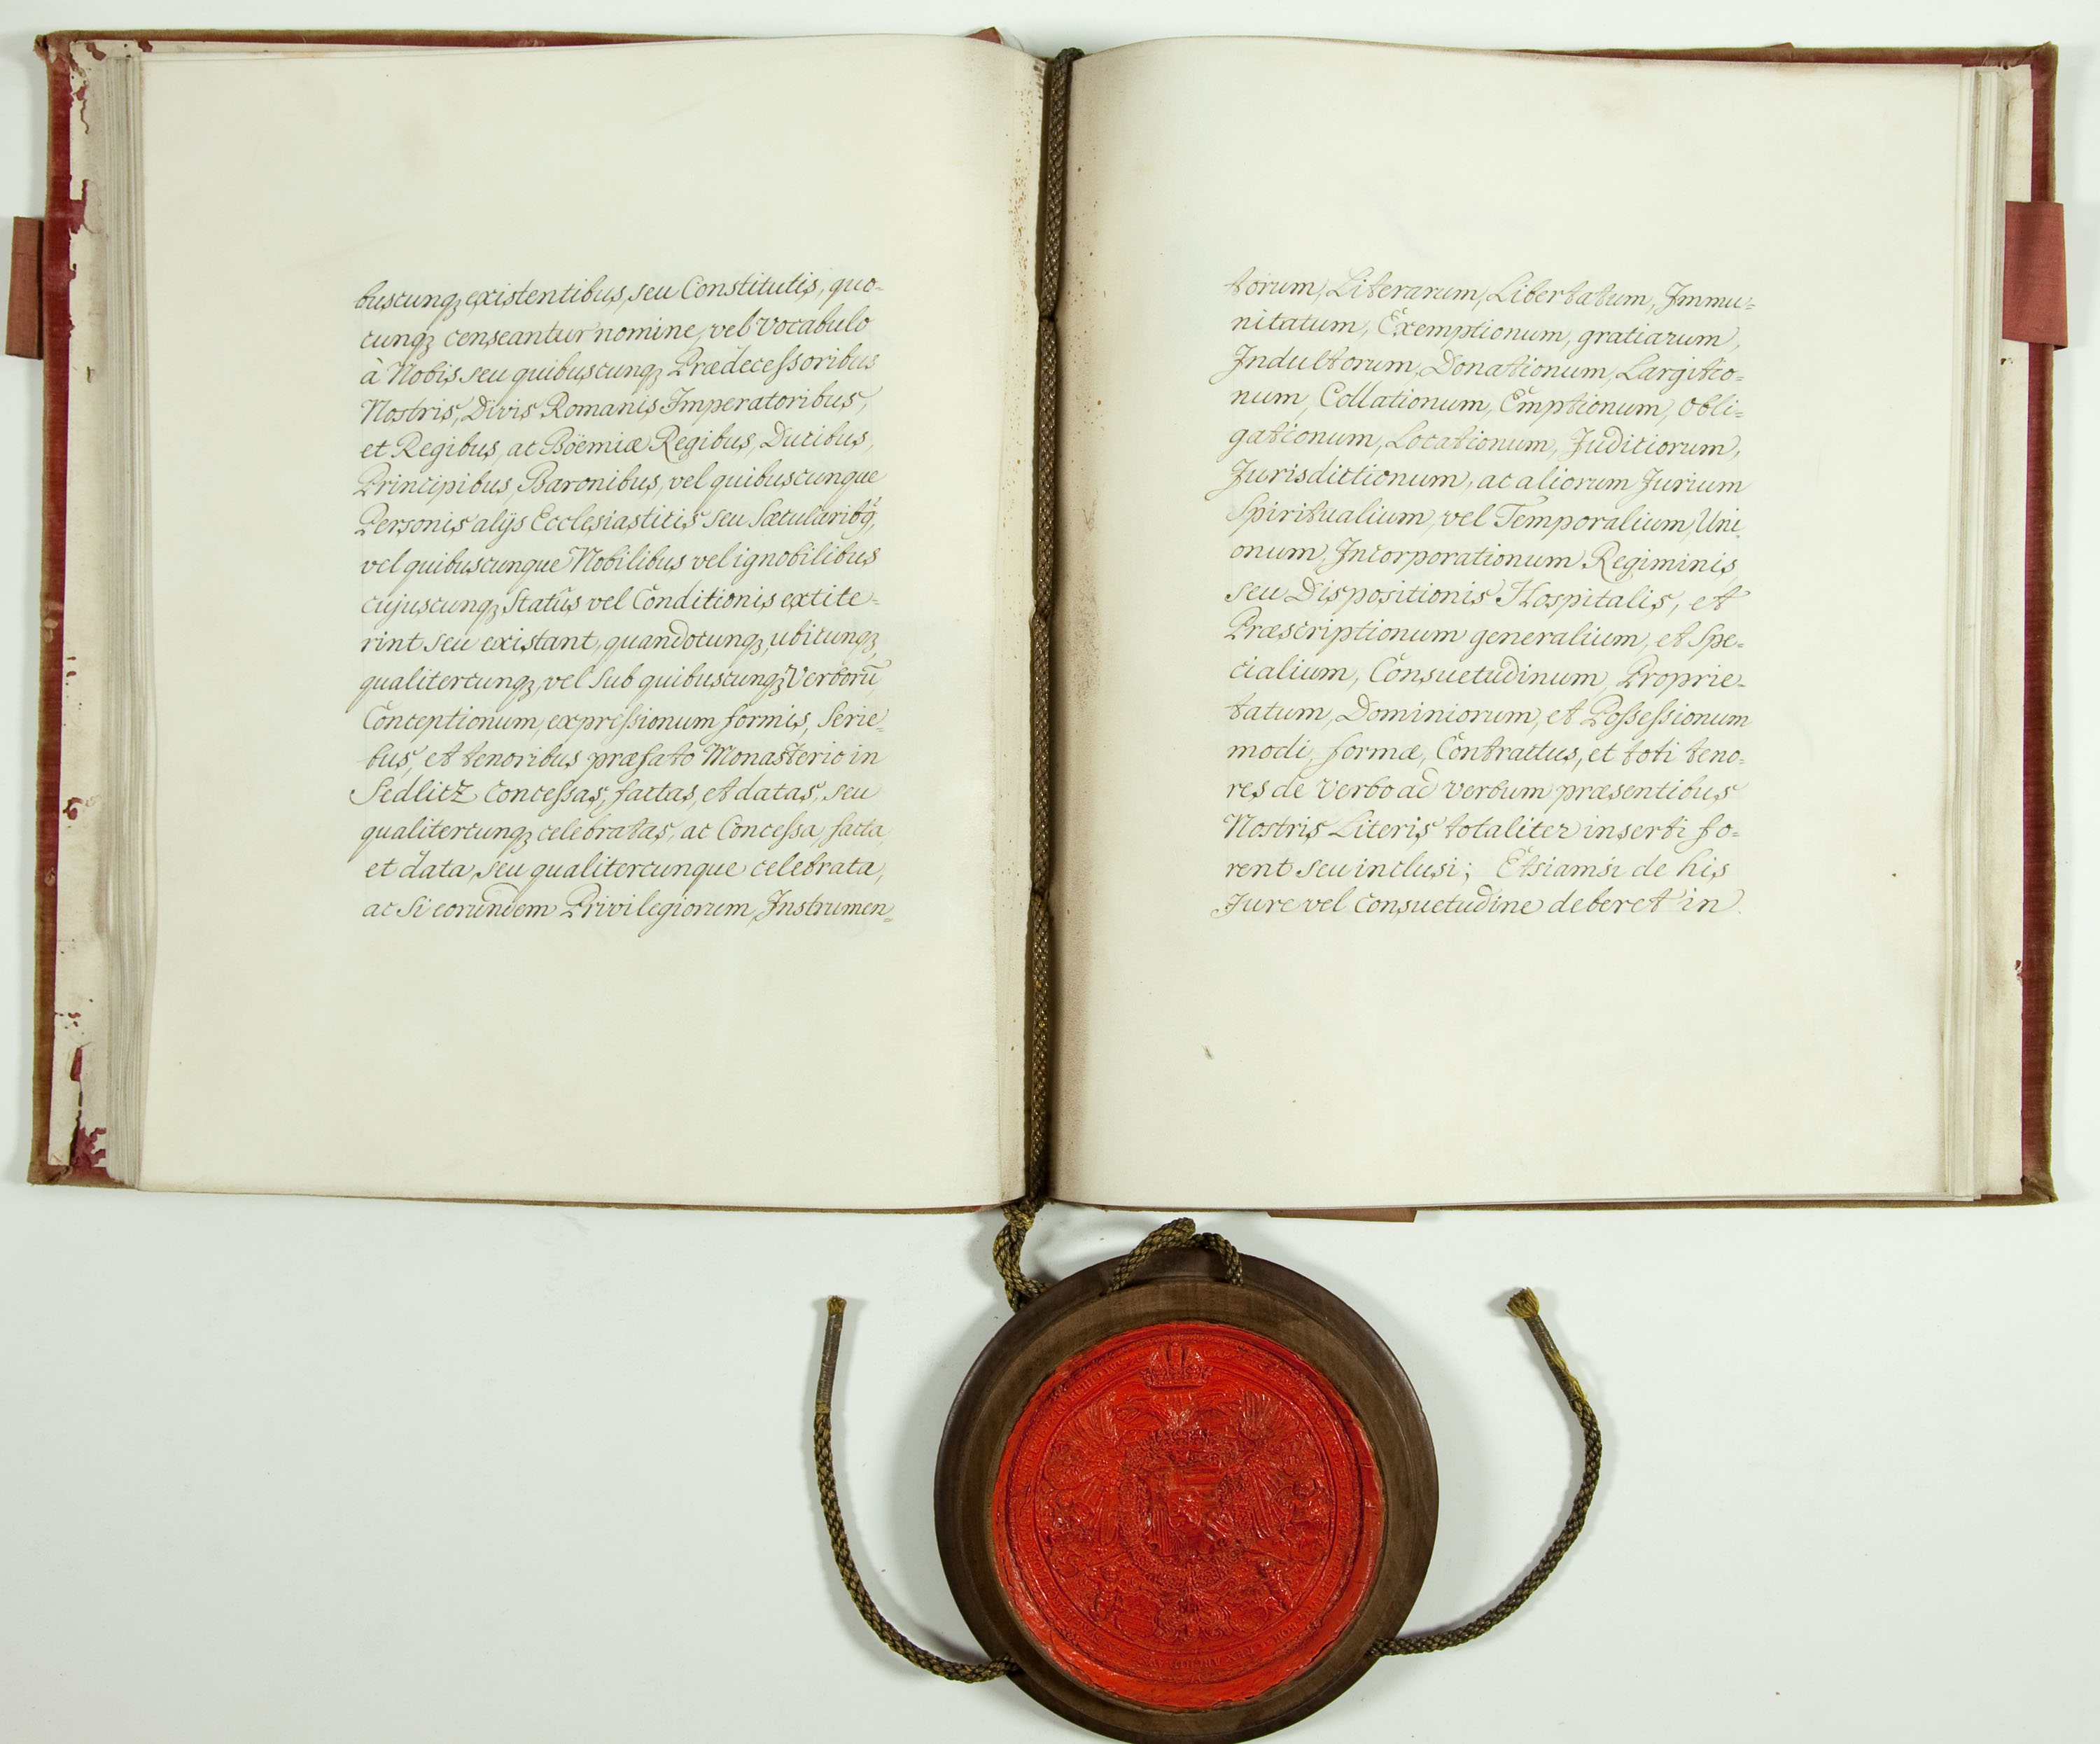 buscunqꝫ existentibus, seu Constitutis, quo=
cunqꝫ censeantur nomine, vel vocabulo
à Nobis seu quibuscunqꝫ Prædecessoribus
Nostris, Divis Romanis Imperatoribus,
et Regibus, ac Böemiæ Regibus, Ducibus,
Principibus, Baronibus, vel quibuscunque
Personis alÿs Ecclesiasticis seu Sæcularibq̃,
vel quibuscunque Nobilibus vel ignobilibus
cujuscunqꝫ Statûs vel Conditionis extite=
rint seu existant, quandocunqꝫ, ubicunqꝫ,
qualitercunqꝫ, vel sub quibuscunqꝫ Verborũ
Conceptionum, expressionum formis, Serie=
bus, et tenoribus præfato Monasterio in
Sedlicz Concessas, factas, et datas, seu
qualitercunqꝫ celebratas, ac Concessa, facta,
et data, seu qualitercunque celebrata,
ac Si eorundem Privilegiorum, Instrumen=
torum, Literarum, Libertatum, Immu=
nitatum, Exemptionum, gratiarum,
Indultorum, Donationum, Largitio=
num, Collationum, Emptionum, Obli=
gationum, Locationum, Judiciorum,
Jurisdictionum, ac aliorum Jurium
Spiritualium, vel Temporalium, Uni=
onum, Incorporationum Regiminis,
seu Dispositionis Hospitalis, et
Præscriptionum generalium, et Spe=
cialium, Consuetudinum, Proprie=
tatum, Dominiorum, et Possessionum
modi, formæ, Contractus, et toti teno=
res de Verbo ad verbum præsentibus
Nostris Literis totaliter inserti fo=
rent seu inclusi; Etsiamsi de his
Jure vel Consuetudine deberet in